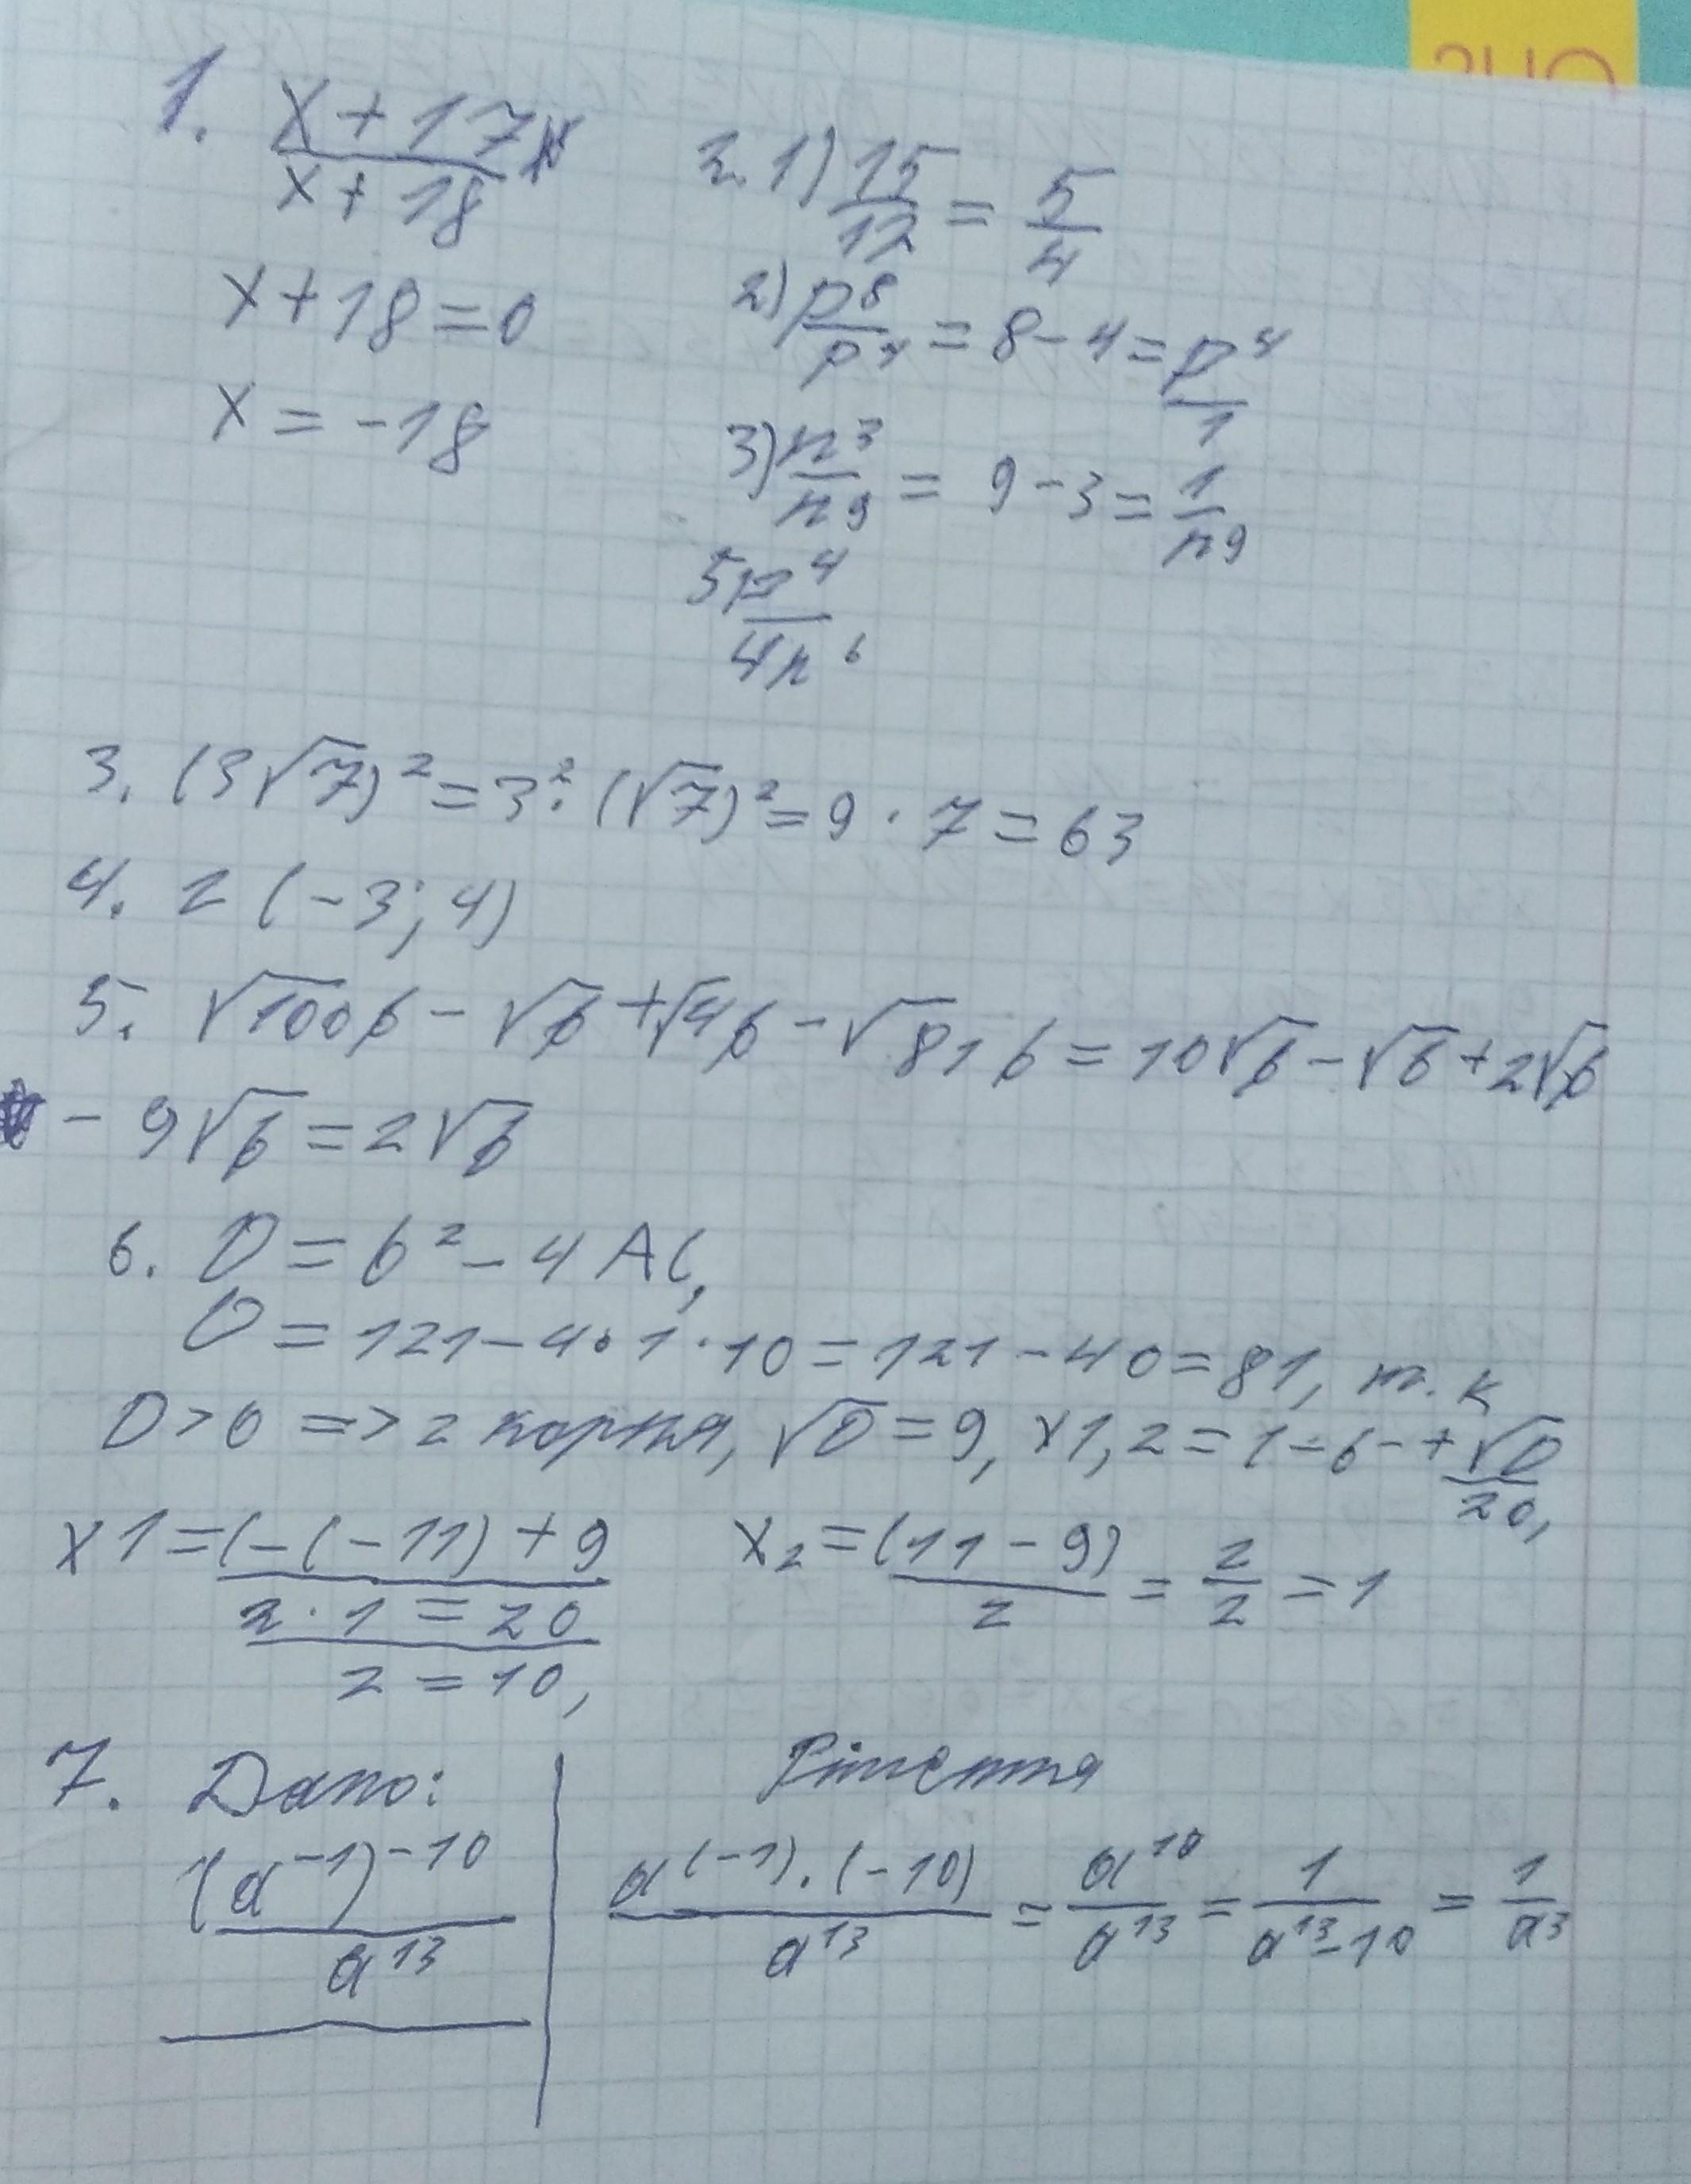 1. x + 17
x + 18
x + 18 = 0
x = -18
2. 1) 15/12 = 5/4
2) p^8/p^4 = 8 - 4 = p^4/1
3) n^3/n^9 = 9 - 3 = 1/n^9
5p^4
4n^6
3. (3√7)² = 3² · (√7)² = 9 · 7 = 63
4. 2 (-3; 4)
5. √100b - √b + √4b - √81b = 10√b - √b + 2√b
- 9√b = 2√b
6. D = b² - 4AC,
D = 121 - 4 · 1 · 10 = 121 - 40 = 81, т. к
D > 0 => 2 корня, √D = 9, x1,2 = (-b-+√D/2a,
x1 = (-(-11) + 9
2 · 1 = 20
2 = 10,
x₂ = (11 - 9)/2 = 2/2 = 1
7. Дано:
(a^-1)^-10
a^13
Рішення
a^(-1)·(-10)/a^13 = a^10/a^13 = 1/a^13-10 = 1/a^3